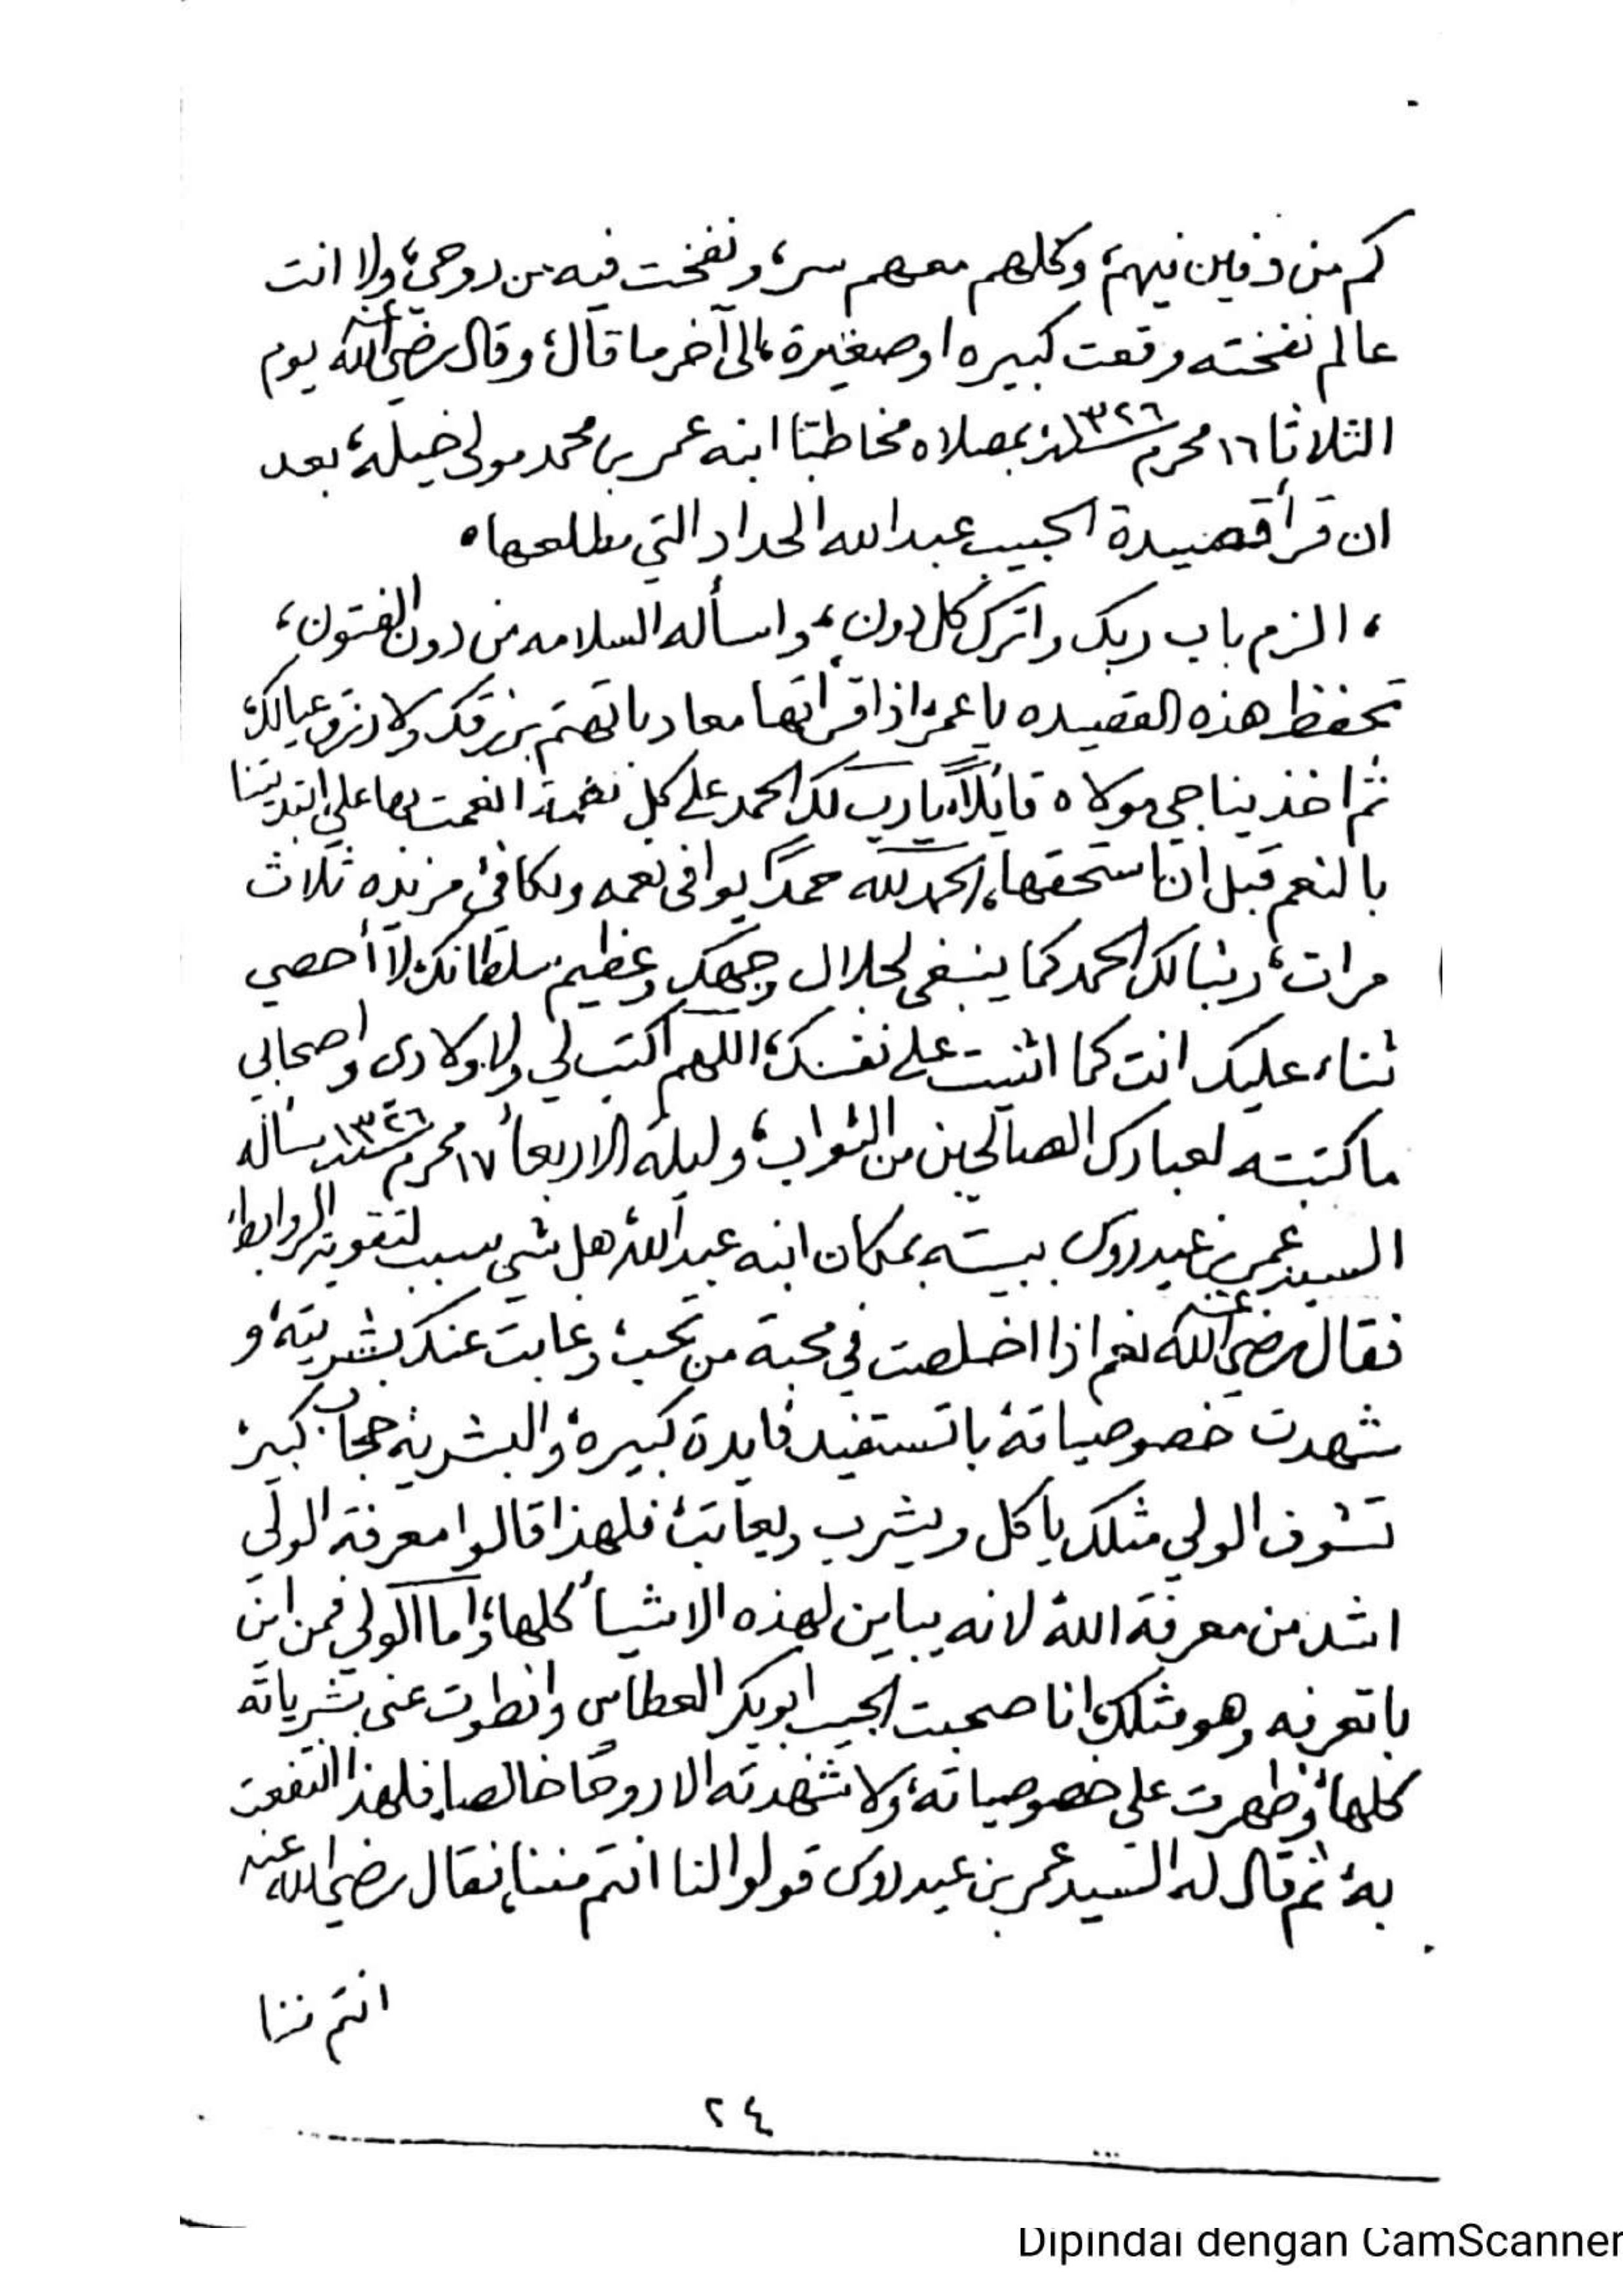 كم من دفين فيهم، وكلهم معهم سر، ونفخت فيه من روحي، ولا انت
عالم نفخته وقعت كبيره او صغيرة، الى آخر ما قال، وقال رضي الله عنه يوم
الثلاثا ١٦ محرم سنة ١٣٢٦ بمصلاه مخاطبًا ابنه عمر بن محمد مولى خيله، بعد
ان قرأ قصيدة الحبيب عبدالله الحداد التي مطلعها •
، الزم باب ربك واترك كل دون، واسأله السلامه من دون الفتون،
تحفظ هذه القصيده يا عمر، اذا قرأتها معاد باتهتم برزقك ولا رزق عيالك،
ثم اخذ يناجي مولاه قايلًا، يارب لك الحمد على كل نعمة انعمت بها علي ابتديتنا
بالنعم قبل ان نستحقها، الحمدلله حمدًا يوافي نعمه ويكافئ مزيده ثلاث
مرات، ربنا لك الحمد كما ينبغي لجلال وجهك وعظيم سلطانك لا أحصي
ثناء عليك انت كما اثنيت على نفسك، اللهم اكتب لي ولاولادي واصحابي
ما كتبته لعبادك الصالحين من الثواب، وليلة الاربعأ ١٧ محرم سنة ١٣٢٦ سأله
السيد عمر بن عيدروس ببيته بمكان ابنه عبدالله، هل شي سبب لتقوية الروابط،
فقال رضي الله عنه نعم اذا اخلصت في محبة من تحب، وغابت عنك بشريته، و
شهدت خصوصياته، باتستفيد فايدة كبيره، والبشرية حجاب كبير،
تشوف الولي مثلك ياكل ويشرب ويعاتب، فلهذا قالوا معرفة الولي
اشد من معرفة الله، لانه يباين لهذه الاشيأ كلها، واما الولي فمن اين
باتعرفه وهو مثلك، انا صحبت الحبيب ابوبكر العطاس وانطوت عني بشرياته
كلها، وظهرت علي خصوصياته، ولا شهدته الا روحًا خالصا، فلهذا انتفعت
به، ثم قال له السيد عمر بن عيدروس قولوا لنا انتم مننا، فقال رضي الله عنه
انتم مننا
٢٤
Dipindai dengan CamScanner